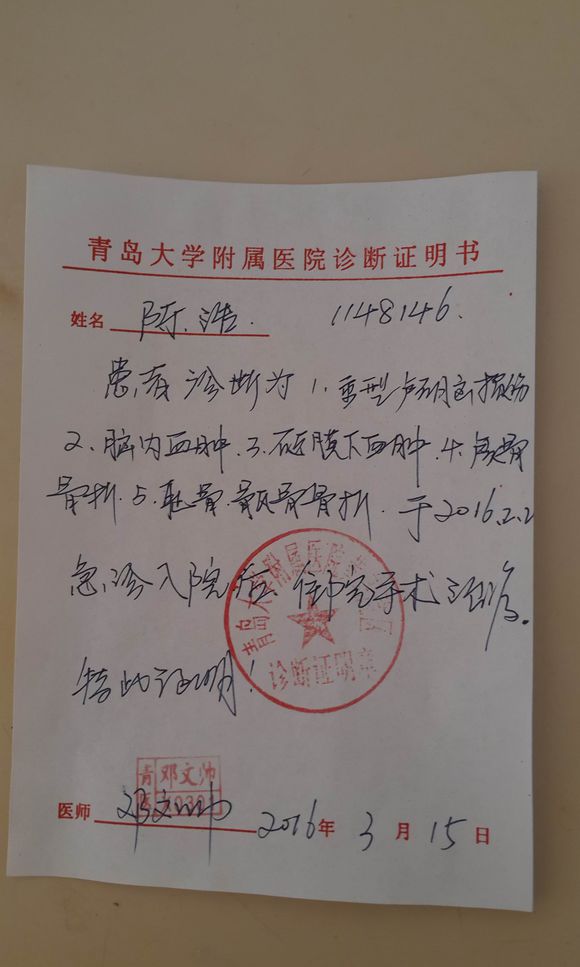 青岛大学附属医院诊断证明书
姓名 陈浩. 1148146.
患者诊断为 1. 重型颅脑损伤
2. 脑内血肿. 3. 硬膜下血肿. 4. 骨
骨折. 5. 耻骨. 髋骨骨折. 于2016.2.2
急诊入院后, 行手术治疗.
特此证明!
诊断证明章
青邓文帅
医师 邓文帅 2016年 3月 15日